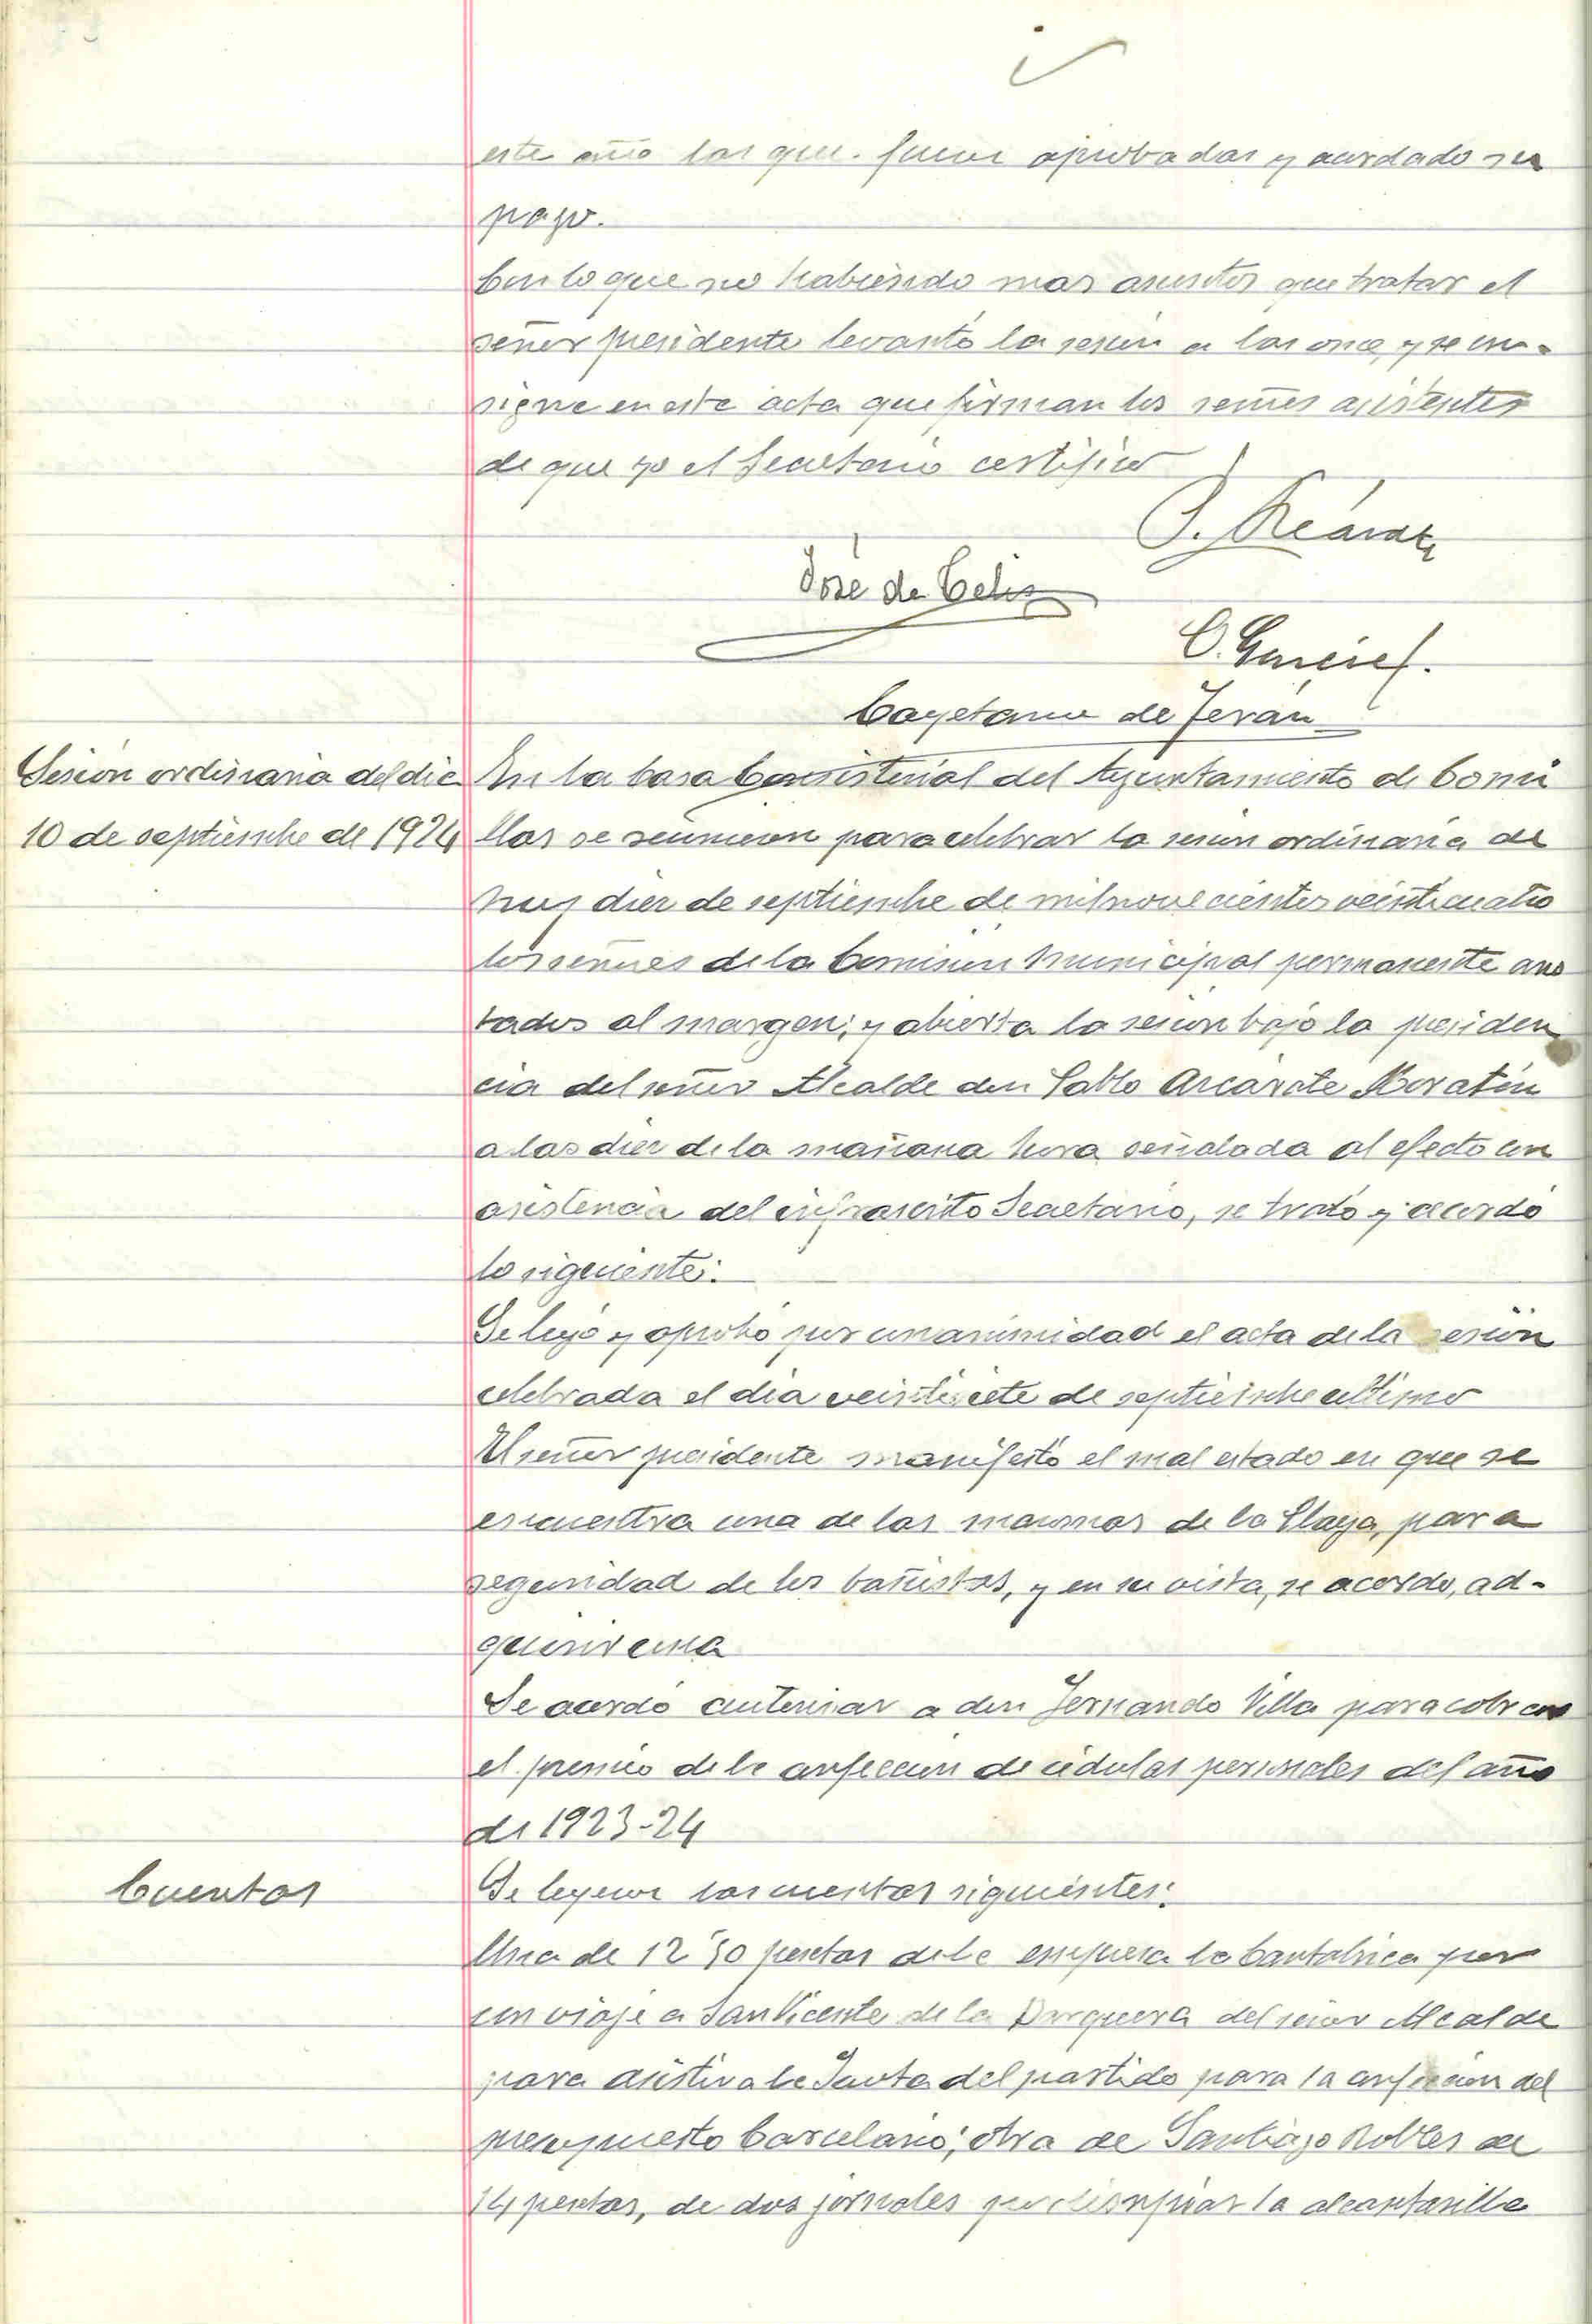 este año las que fueron aprobadas y acordado su
pago.
Con lo que no habiendo mas asuntos que tratar el
señor presidente levantó la sesion a las once, y se con-
signe en esta acta que firman los señores asistentes
de que yo el Secretario certifico
José de Celis
Cayetano de Terán
Sesión ordinaria del dia
10 de septiembre de 1924
En la Casa Consistorial del Ayuntamiento de Comi
llas se reunieron para celebrar la sesion ordinaria de
hoy diez de septiembre de mil novecientos veinticuatro
los señores de la Comision Municipal permanente ano
tados al margen; y abierta la sesion bajo la presiden
cia del señor Alcalde don Pablo Arcárate Moratin
a las diez de la mañana hora señalada al efecto con
asistencia del infrascrito Secretario, se trató y acordó
lo siguiente:
Se leyó y aprobó por unanimidad el acta de la sesión
celebrada el dia veintisiete de septiembre ultimo
El señor presidente manifestó el mal estado en que se
encuentra una de las maromas de la Playa, para
seguridad de los bañistas, y en su vista, se acordo, ad-
quirir una
Se acordó autorizar a don Fernando Villa para cobrar
el premio de la confeccion de cédulas personales del año
de 1923-24
Cuentas
Se leyeron las cuentas siguientes:
Una de 12'50 pesetas de la empresa la Cantabrica por
un viaje a San Vicente de la Barquera del señor Alcalde
para asistir a la Junta del partido para la confeccion del
presupuesto Carcelario; otra de Santiago Robles de
14 pesetas, de dos jornales por limpiar la alcantarilla